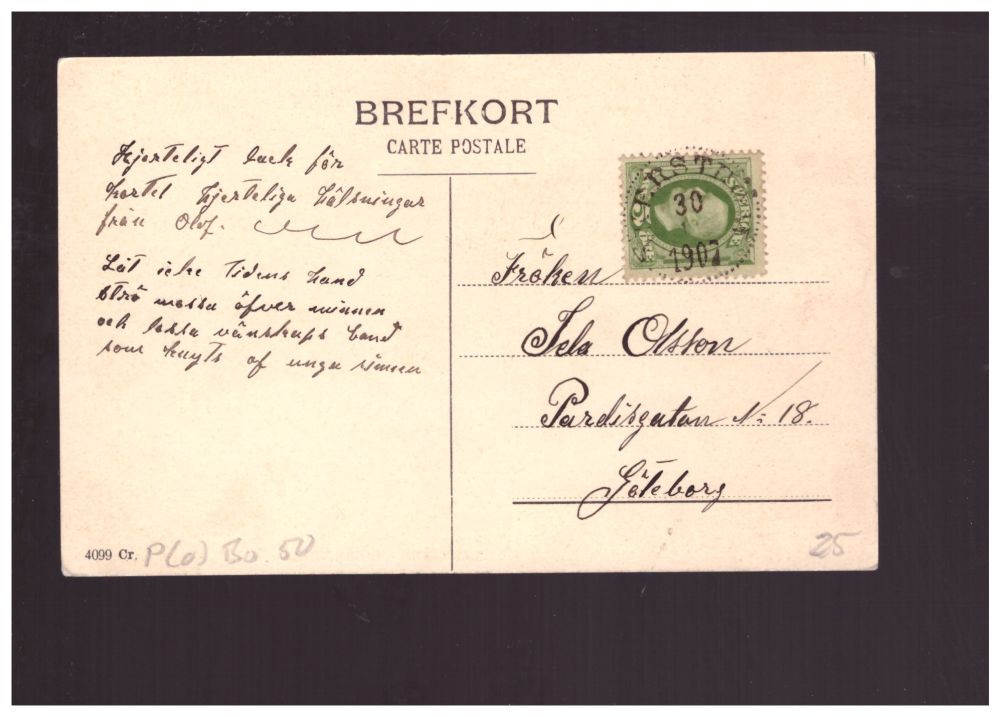 BREFKORT
CARTE POSTALE
Hjerteligt tack för
kortet Hjerteliga Hälsningar
från Olof.
Låt icke Tidens hand
strö mossa öfver minnen
och lossa vänskaps band
som knyts af unga sinnen
30
1907
SVERIGE
Fröken
Olsson
Pardisgatan No 18.
Göteborg
4099 Cr.
P(o) Bo. 50
25